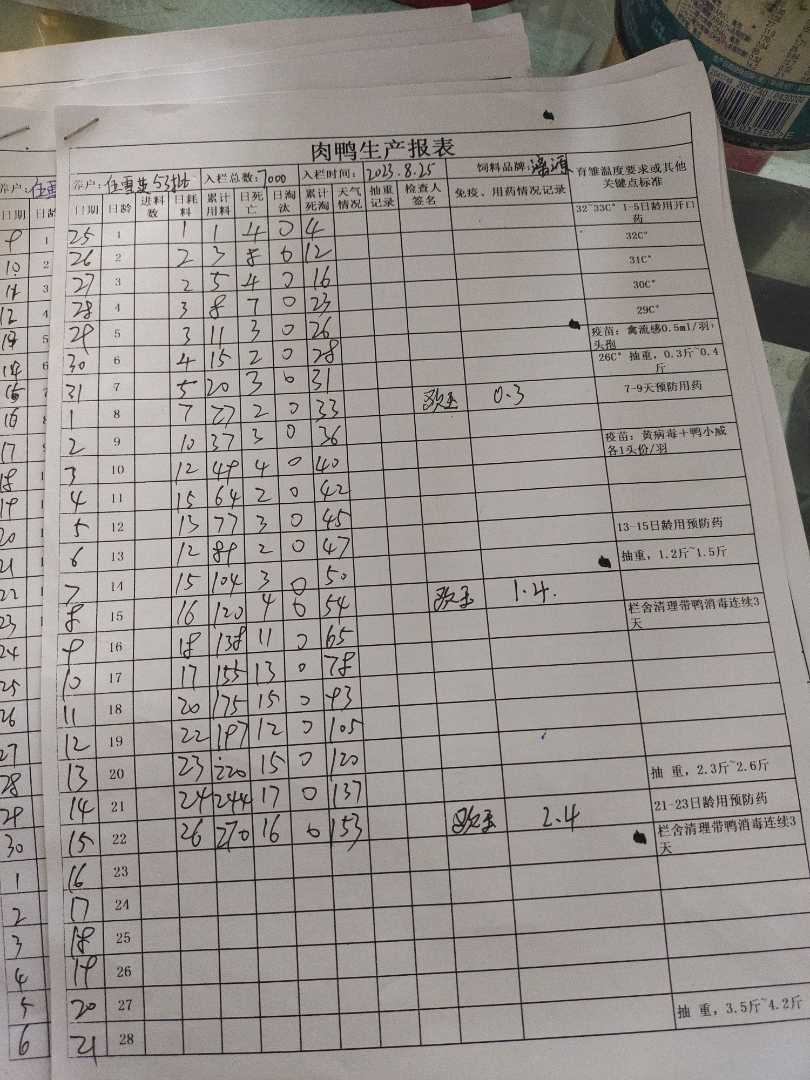 肉鸭生产报表
养户: 53批 入栏总数: 7000 入栏时间: 2023.8.25 饲料品牌: 育雏温度要求或其他关键点标准
日期 日龄 进料数 日耗料 累计用料 日死亡 日淘汰 累计死淘 天气情况 抽重记录 检查人签名 免疫、用药情况记录
25 1 1 1 4 0 4 32~33C° 1-5日龄用开口药
26 2 2 3 8 0 12 32C°
27 3 2 5 4 0 16 31C°
28 4 3 8 7 0 23 30C°
29 5 3 11 3 0 26 29C°
30 6 4 15 2 0 28 疫苗：禽流感0.5ml/羽，头孢
31 7 5 20 3 0 31 26C° 抽重，0.3斤~0.4斤
1 8 7 27 2 0 33 0.3 7-9天预防用药
2 9 10 37 3 0 36
3 10 12 49 4 0 40 疫苗：黄病毒+鸭小威各1头份/羽
4 11 15 64 2 0 42
5 12 13 77 3 0 45
6 13 12 89 2 0 47 13-15日龄用预防药
7 14 15 104 3 0 50 抽重，1.2斤~1.5斤
8 15 16 120 4 0 54 1.4.
9 16 18 138 11 0 65 栏舍清理带鸭消毒连续3天
10 17 17 155 13 0 78
11 18 20 175 15 0 93
12 19 22 197 12 0 105
13 20 23 220 15 0 120
14 21 24 244 17 0 137 抽 重，2.3斤~2.6斤
15 22 26 270 16 0 153 2.4 21-23日龄用预防药
16 23 栏舍清理带鸭消毒连续3天
17 24
18 25
19 26
20 27
21 28 抽 重，3.5斤~4.2斤